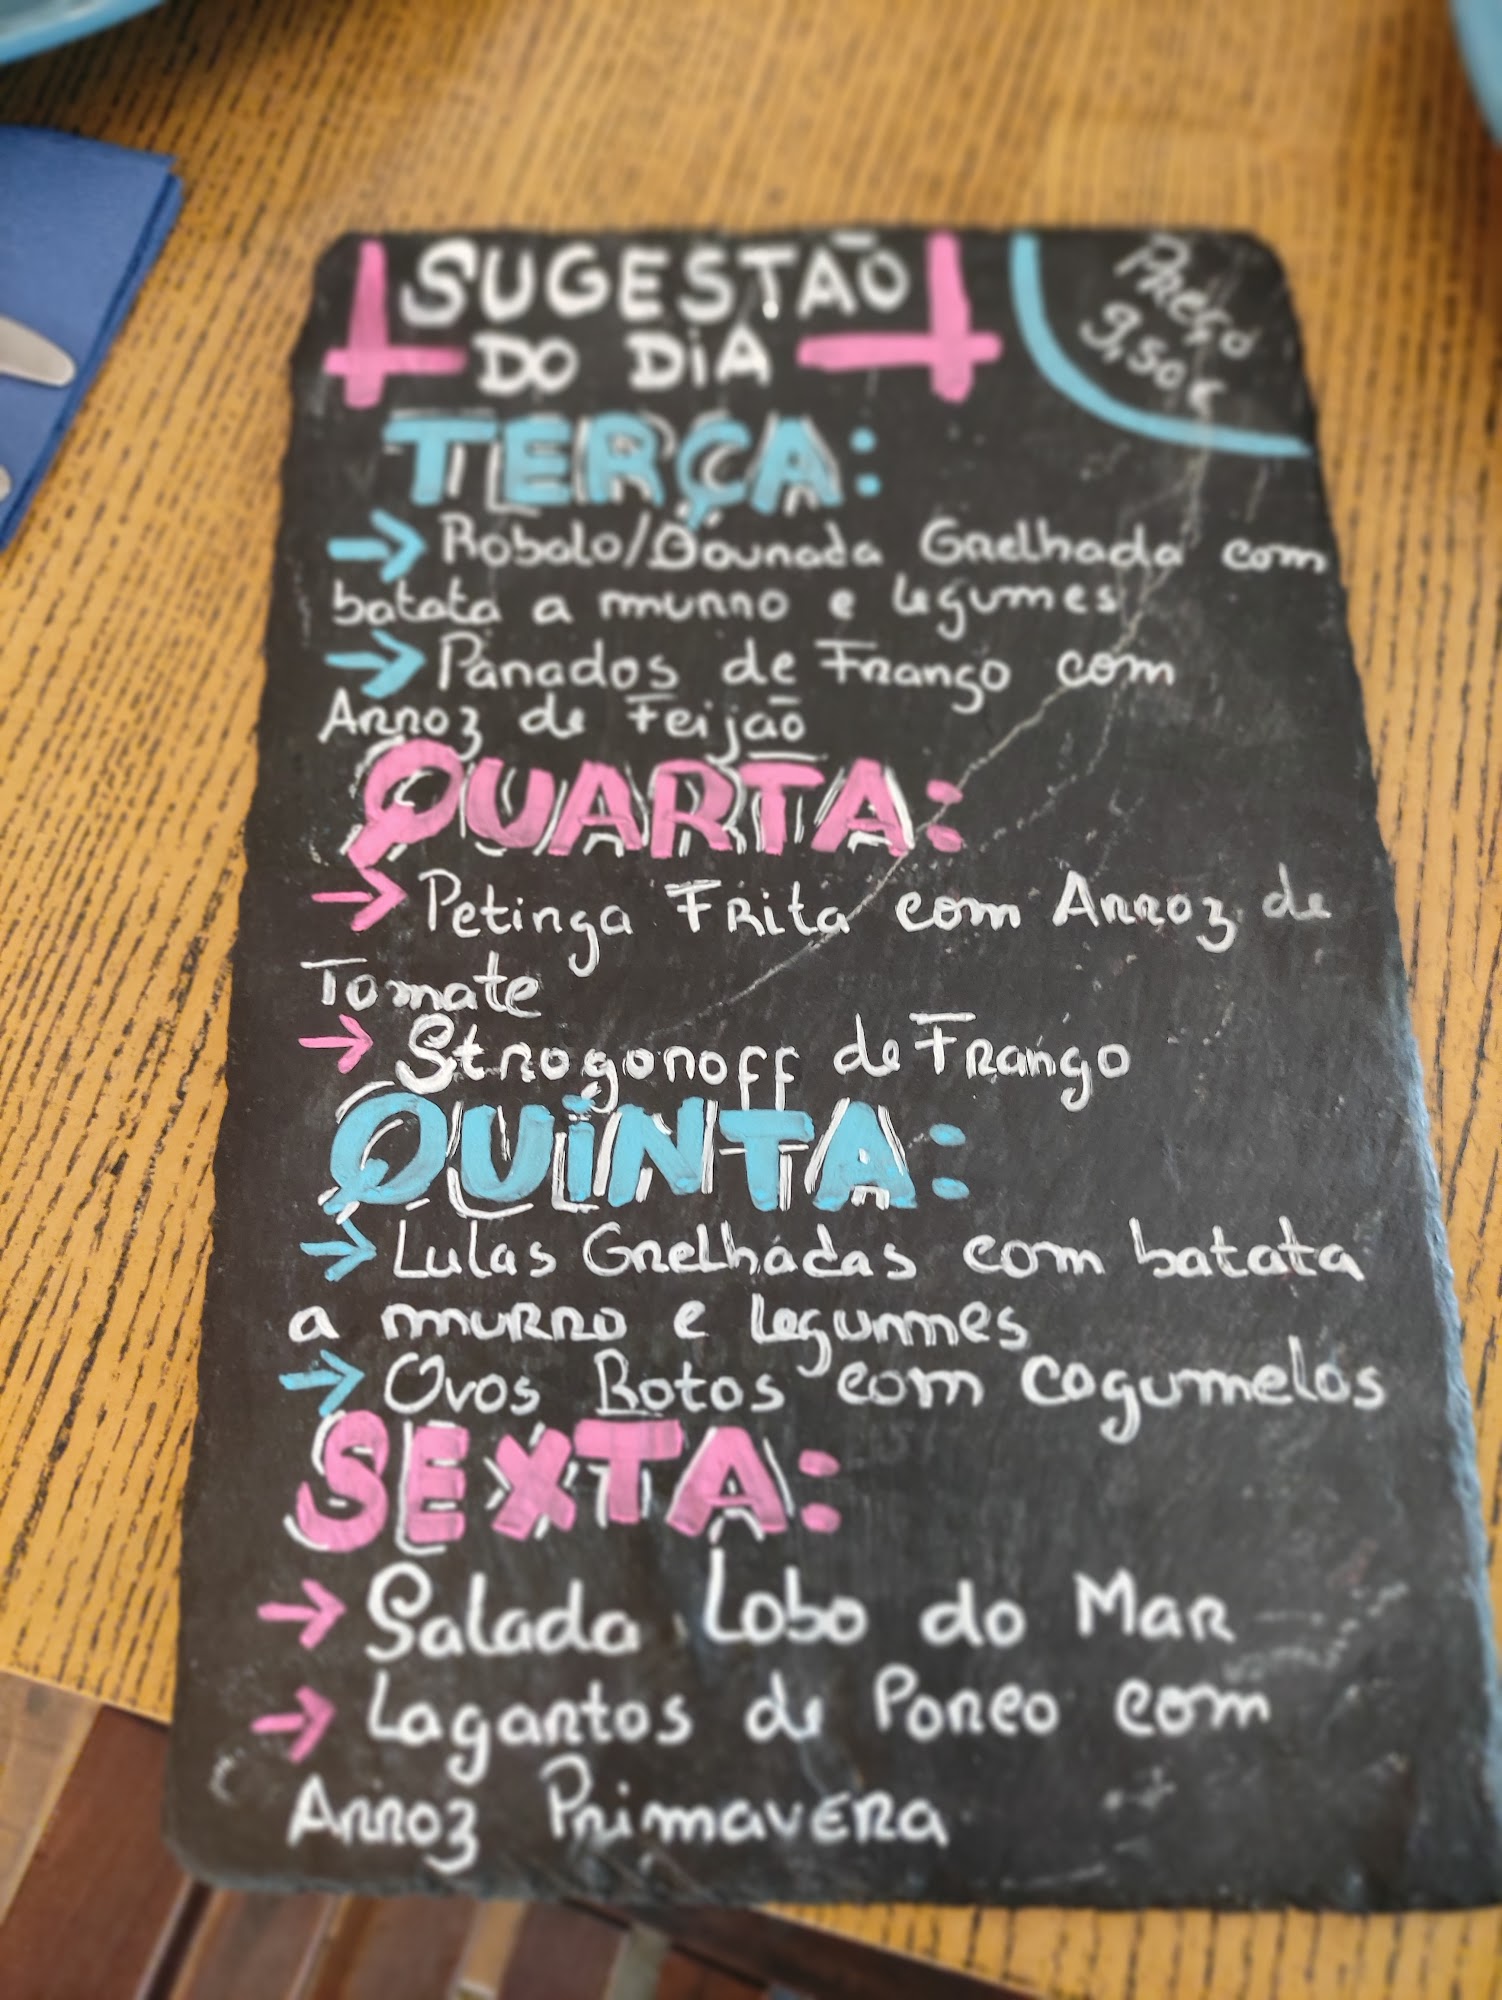 SUGESTÃO
DO DIA
Preço
9,50€
TERÇA:
→ Robalo/Dourada Grelhada com
batata a murro e legumes
→ Panados de Frango com
Arroz de Feijão
QUARTA:
→ Petinga Frita com Arroz de
Tomate
→ Strogonoff de Frango
QUINTA:
→ Lulas Grelhadas com batata
a murro e legumes
→ Ovos Rotos com cogumelos
SEXTA:
→ Salada Lobo do Mar
→ Lagartos de Porco com
Arroz Primavera